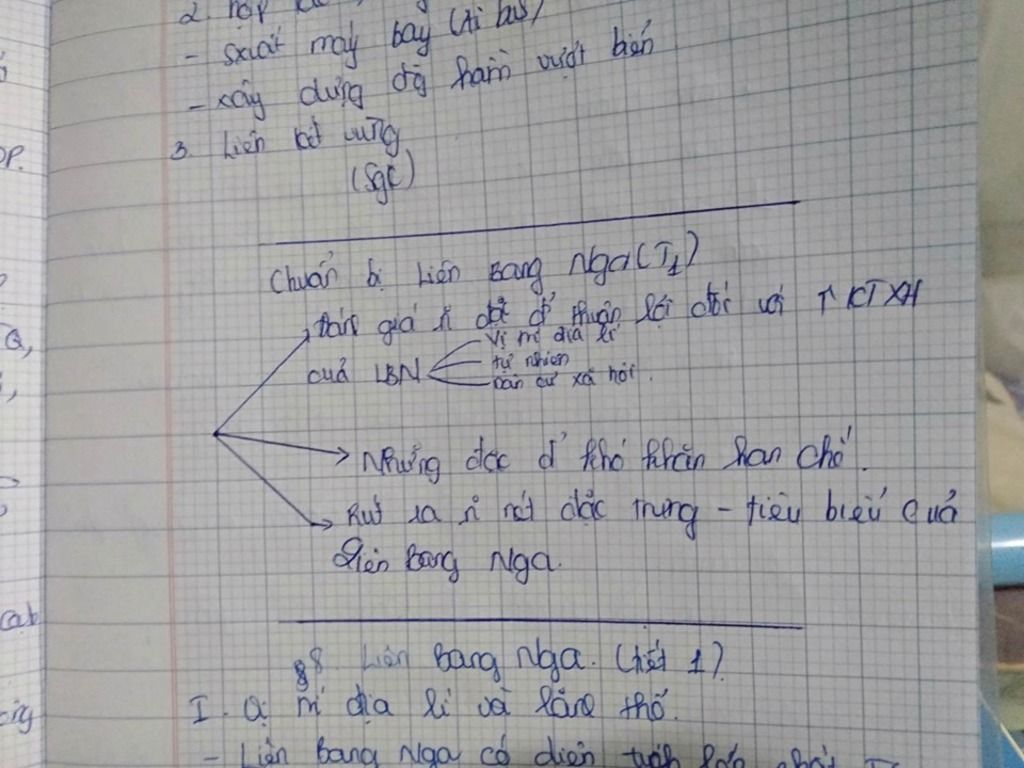 2. hợp
- sxuất máy bay (Ai bus)
- xây dựng đg hầm vượt biển
3. Liên kết vùng
(sgk)
Chuẩn bị Liên Bang Nga (T1)
Đán giá n đặc đ' thuận lợi đối với ↑ KTXH
của LBN
vị trí địa lí
tự nhiên
dân cư xã hội.
Những đặc đ' khó khăn hạn chế.
Rút ra n nét đặc trưng - tiêu biểu của
Liên Bang Nga.
§8 Liên Bang Nga. (tiết 1)
I. trí địa lí và lãnh thổ.
- Liên Bang Nga có diện tích lớn nhất